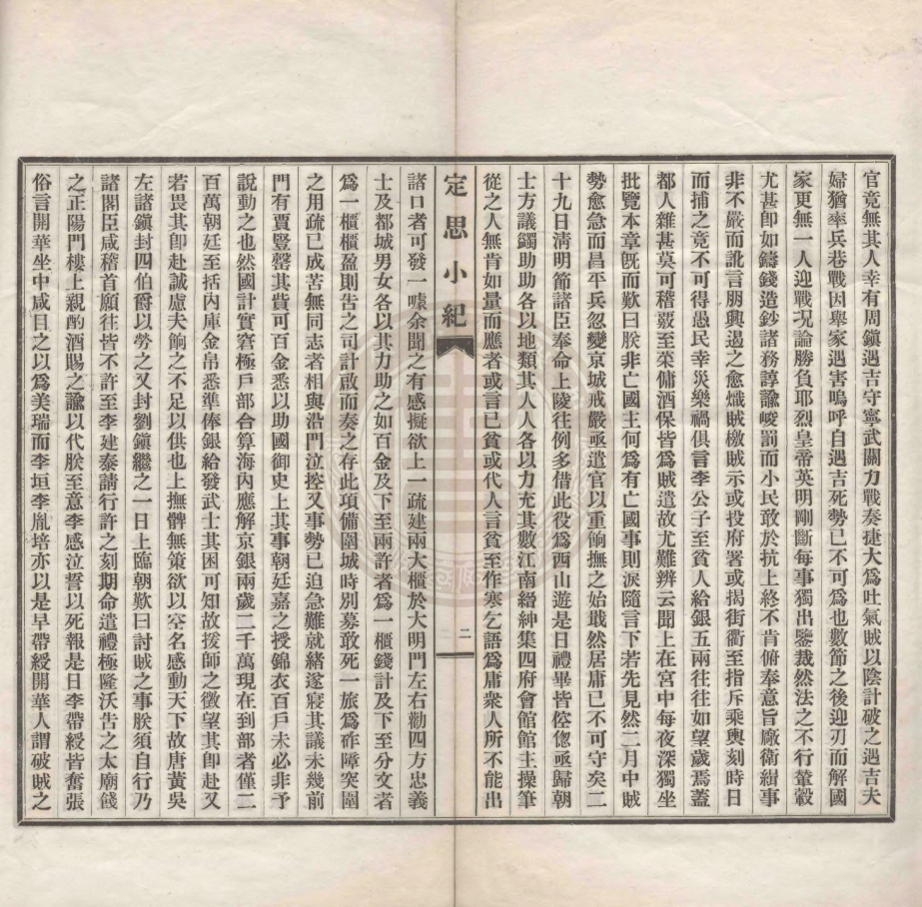 官竟無其人幸有周鎮遇吉守寧武關力戰奏捷大爲吐氣賊以陰計破之遇吉夫
婦猶率兵巷戰因舉家遇害嗚呼自遇吉死勢已不可爲也數節之後迎刃而解國
家更無一人迎戰况論勝負耶烈皇帝英明剛斷每事獨出鑒裁然法之不行輦轂
尤甚卽如鑄錢造鈔諸務諄諭峻罰而小民敢於抗上終不肯俯奉意旨廠衛緝事
非不嚴而訛言朋興遏之愈熾賊檄賊示或投府署或揭街衢至指斥乘輿刻時日
而捕之竟不可得愚民幸災樂禍俱言李公子至貧人給銀五兩往往如望歲焉蓋
都人雜甚莫可稽覈至菜傭酒保皆爲賊遣故尤難辨云聞上在宮中每夜深獨坐
批覽本章旣而歎曰朕非亡國主何爲有亡國事則淚隨言下若先見然二月中賊
勢愈急而昌平兵忽變京城戒嚴亟遣官以重餉撫之始戢然居庸已不可守矣二
十九日淸明節諸臣奉命上陵往例多借此役爲西山遊是日禮畢皆倥偬亟歸朝
士方議蠲助助各以地類其人人各以力充其數江南縉紳集四府會館館主操筆
從之人無肯如量而應者或言已貧或代人言貧至作寒乞語爲庸衆人所不能出
定思小紀
二
諸口者可發一噱余聞之有感擬欲上一疏建兩大櫃於大明門左右勸四方忠義
士及都城男女各以其力助之如百金及下至兩許者爲一櫃錢計及下至分文者
爲一櫃櫃盈則告之司計啟而奏之存此項備圍城時別募敢死一旅爲砟障突圍
之用疏已成苦無同志者相與沿門泣控又事勢已迫急難就緒遂寢其議未幾前
門有賈豎罄其貲可百金悉以助國御史上其事朝廷嘉之授錦衣百戶未必非予
說動之也然國計實窘極戶部合算海內應解京銀兩歲二千萬現在到部者僅二
百萬朝廷至括內庫金帛悉準俸銀給發武士其困可知故援師之徵望其卽赴又
若畏其卽赴誠慮夫餉之不足以供也上撫髀無策欲以空名感動天下故唐黃吳
左諸鎮封四伯爵以勞之又封劉鎮繼之一日上臨朝歎曰討賊之事朕須自行乃
諸閣臣咸稽首願往皆不許至李建泰請行許之刻期命遣禮極隆沃告之太廟餞
之正陽門樓上親酌酒賜之諭以代朕至意李感泣誓以死報是日李帶綬皆奮張
俗言開華坐中咸目之以爲美瑞而李垣李胤培亦以是早帶綬開華人謂破賊之